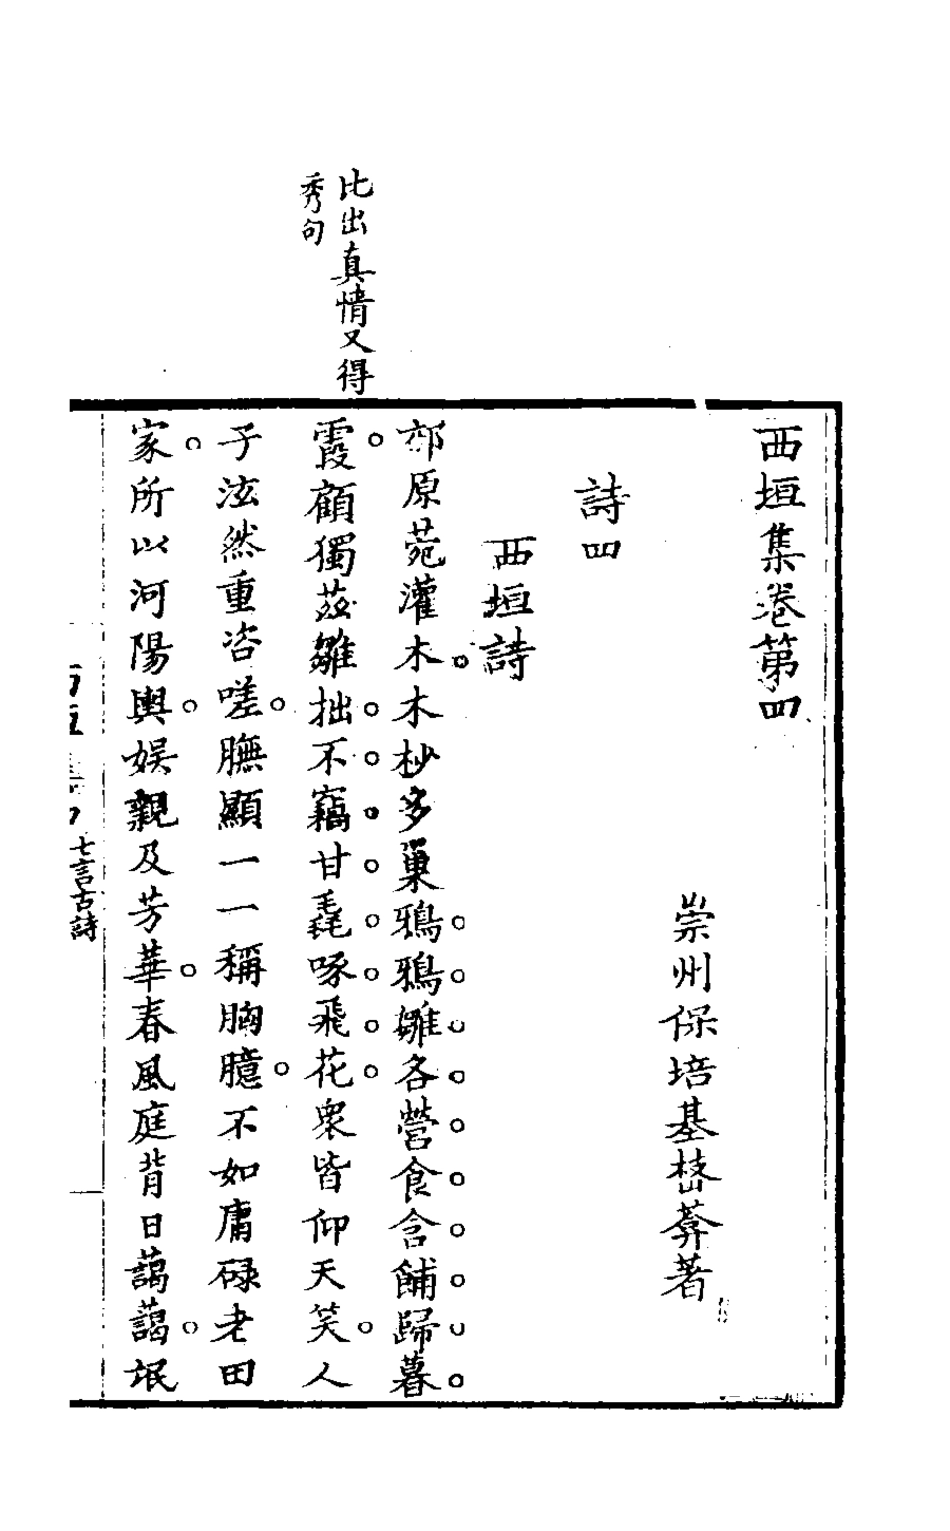 西垣集卷第四
崇州保培基㟳莽著
詩四
西垣詩
郊原菀灌木木杪多巢鴉鴉雛各營食含餔歸暮
霞顧獨茲雛拙不竊甘毳啄飛花衆皆仰天笑人
子泫然重咨嗟膴顯一一稱胸臆不如庸碌老田
家所以河陽輿娛親及芳華春風庭背日藹藹垊
比出真情又得
秀句
七言古詩